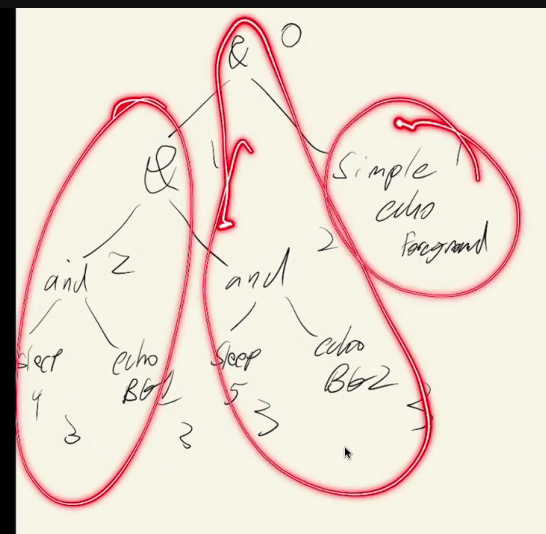 & 0
& 1
Simple 1
echo
Foreground
and 2
and 2
sleep
4
3
echo
BG1
3
Sleep
5
3
echo
BG2
3